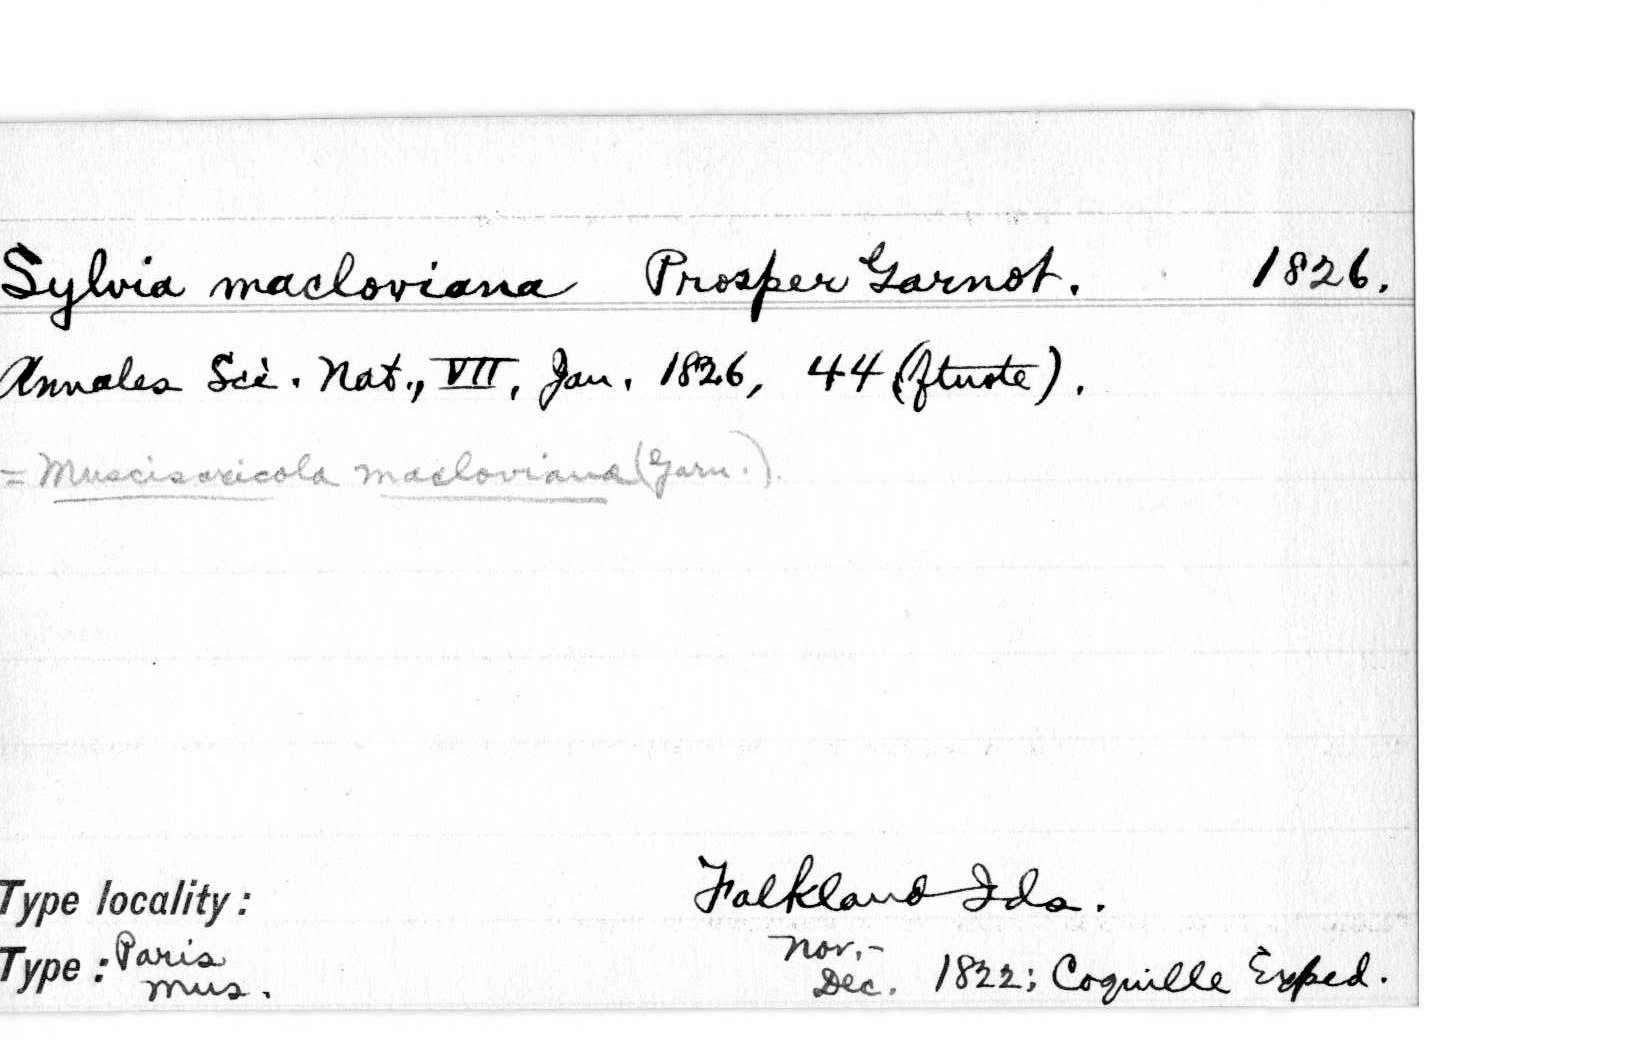 Sylvia macloviana Prosper Garnot. 1826.
Annales Sci. Nat., VII, Jan. 1826, 44 (ftnote).
= Muscisaxicola macloviana (Garn.).
Type locality: Falkland Ids.
Type: Paris Mus. Nov.-Dec. 1822; Coquille Exped.